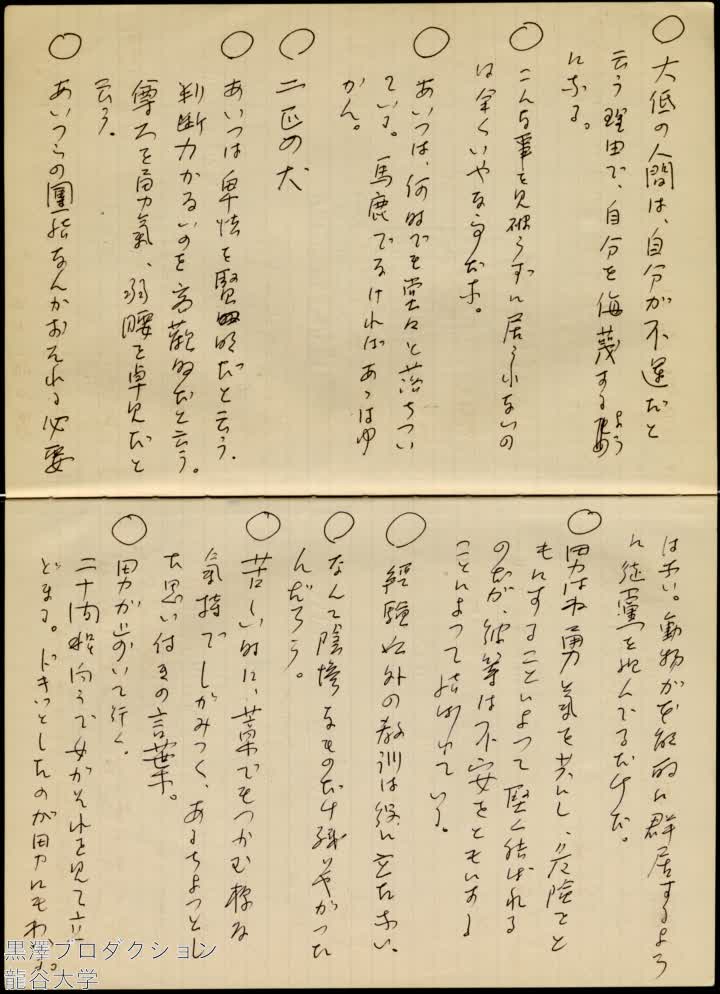 ○ 大低の人間は、自分が不運だと
云う理由で、自分を侮蔑するよう
になる。
○ こんな事を見破らずに居られないの
は全くいやな事だ。
○ あいつは、何時でも堂々と落ちつい
ている。馬鹿でなければあっはゆ
かん。
○ 二匹の犬
○ あいつは卑怯を賢明だと云う。
判断力がないのを客観的だと云う。
尊大を勇気、弱腰を卓見だと
云う。
○ あいつらの團結なんかおそれる必要
はない。動物が本能的に群居するよう
に徒黨を組んでるだけだ。
○ 男はね勇気を共にし、危険をと
もにすることによって堅く結ばれる
のだが、彼等は不安をともにする
ことによって結ばれている。
○ 経験以外の教訓は役に立たない。
○ なんて陰惨なものだけ残りやがった
んだろう。
○ 苦しい時に、藁でもつかむ様な
気持でしがみつく、あるちょっとし
た思い付きの言葉。
○ 男が歩いて行く。
二十間程向うで女がそれを見て立
どまる。ドキッとしたのが男にもわかる。
黒澤プロダクション
龍谷大学